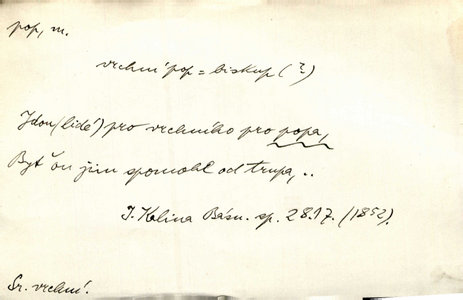 pop, m.
vrchní pop = biskup (?)
Jdou (lidé) pro vrchního pro popa,
Byť on jim spomohl od trapa, ..
J. Kalina Básn. sp. 28.17. (1852).
Sr. vrchní.